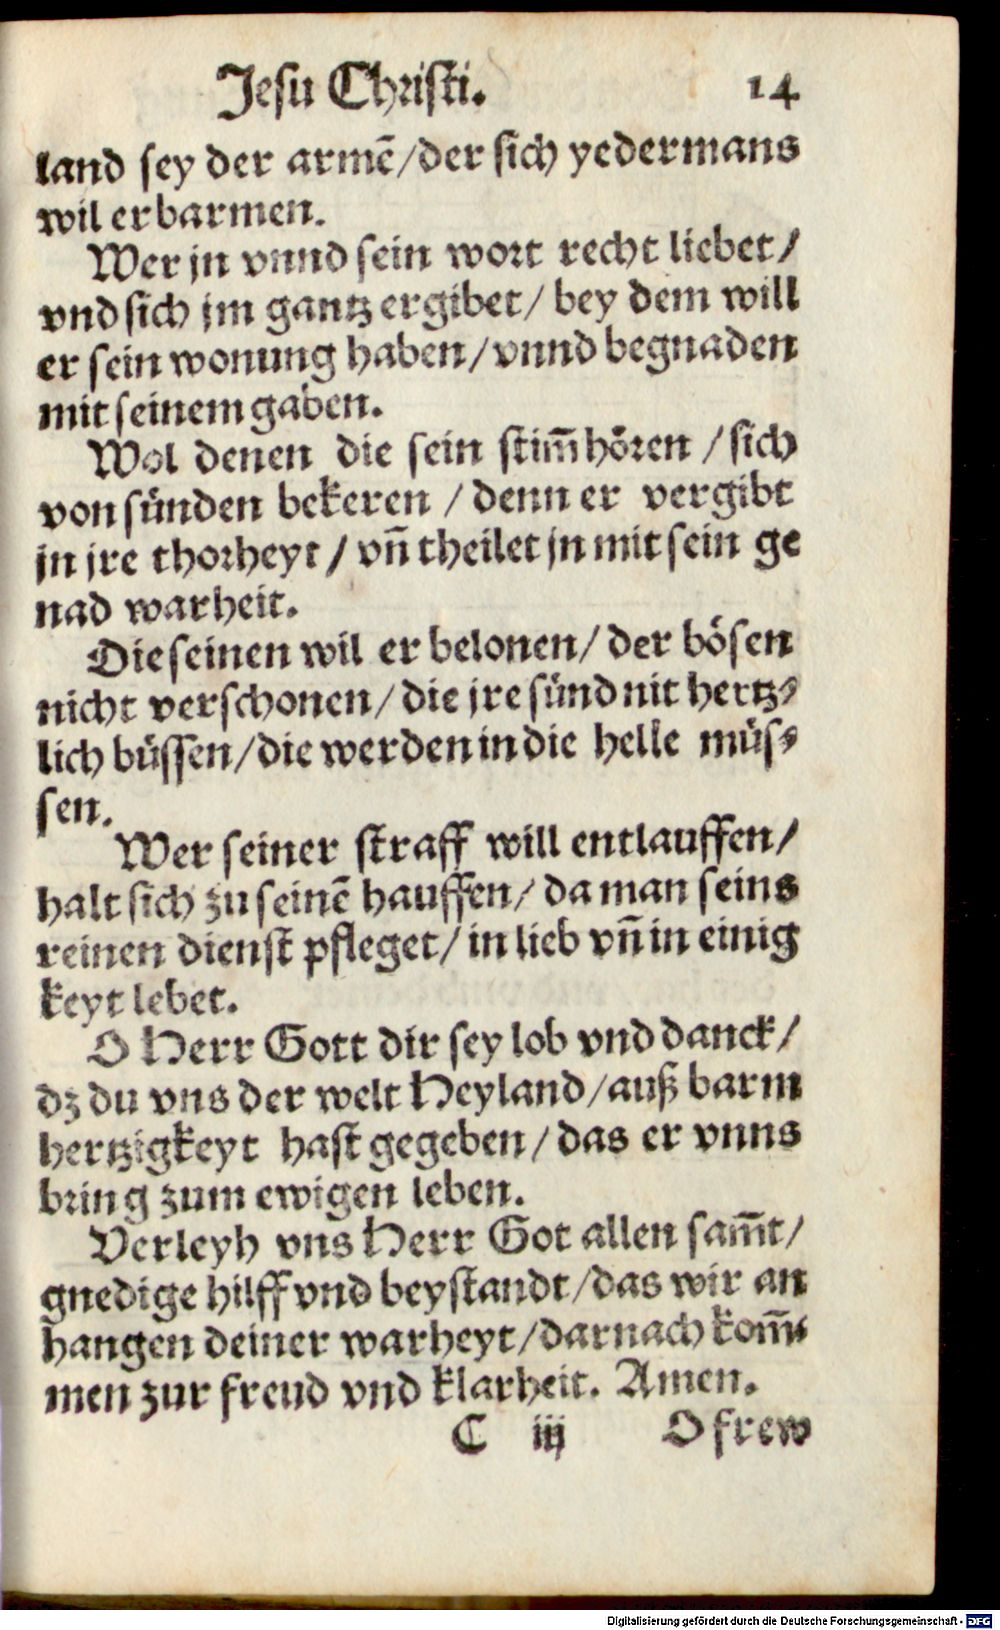 Jesu Christi. 14
land sey der armē/der sich yedermans
wil erbarmen.
Wer jn vnnd sein wort recht liebet/
vnd sich jm gantz ergibet/ bey dem will
er sein wonung haben/vnnd begnaden
mit seinem gaben.
Wol denen die sein stim̄ hören /sich
von sünden bekeren / denn er vergibt
jn jre thorheyt / vn̄ theilet jn mit sein ge
nad warheit.
Die seinen wil er belonen/ der bösen
nicht verschonen/ die jre sünd nit hertz⸗
lich büssen/die werden in die helle müs⸗
sen.
Wer seiner straff will entlauffen/
halt sich zu seinē hauffen/ da man seins
reinen dienst pfleget/ in lieb vn̄ in einig
keyt lebet.
O Herr Gott dir sey lob vnd danck/
dz du vns der welt Heyland/auß barm
hertzigkeyt hast gegeben/das er vnns
bring zum ewigen leben.
Verleyh vns Herr Got allen sam̄t/
gnedige hilff vnd beystandt/das wir an
hangen deiner warheyt/darnach kom̄⸗
men zur freud vnd klarheit. Amen.
C iij O frew
Digitalisierung gefördert durch die Deutsche Forschungsgemeinschaft - DFG